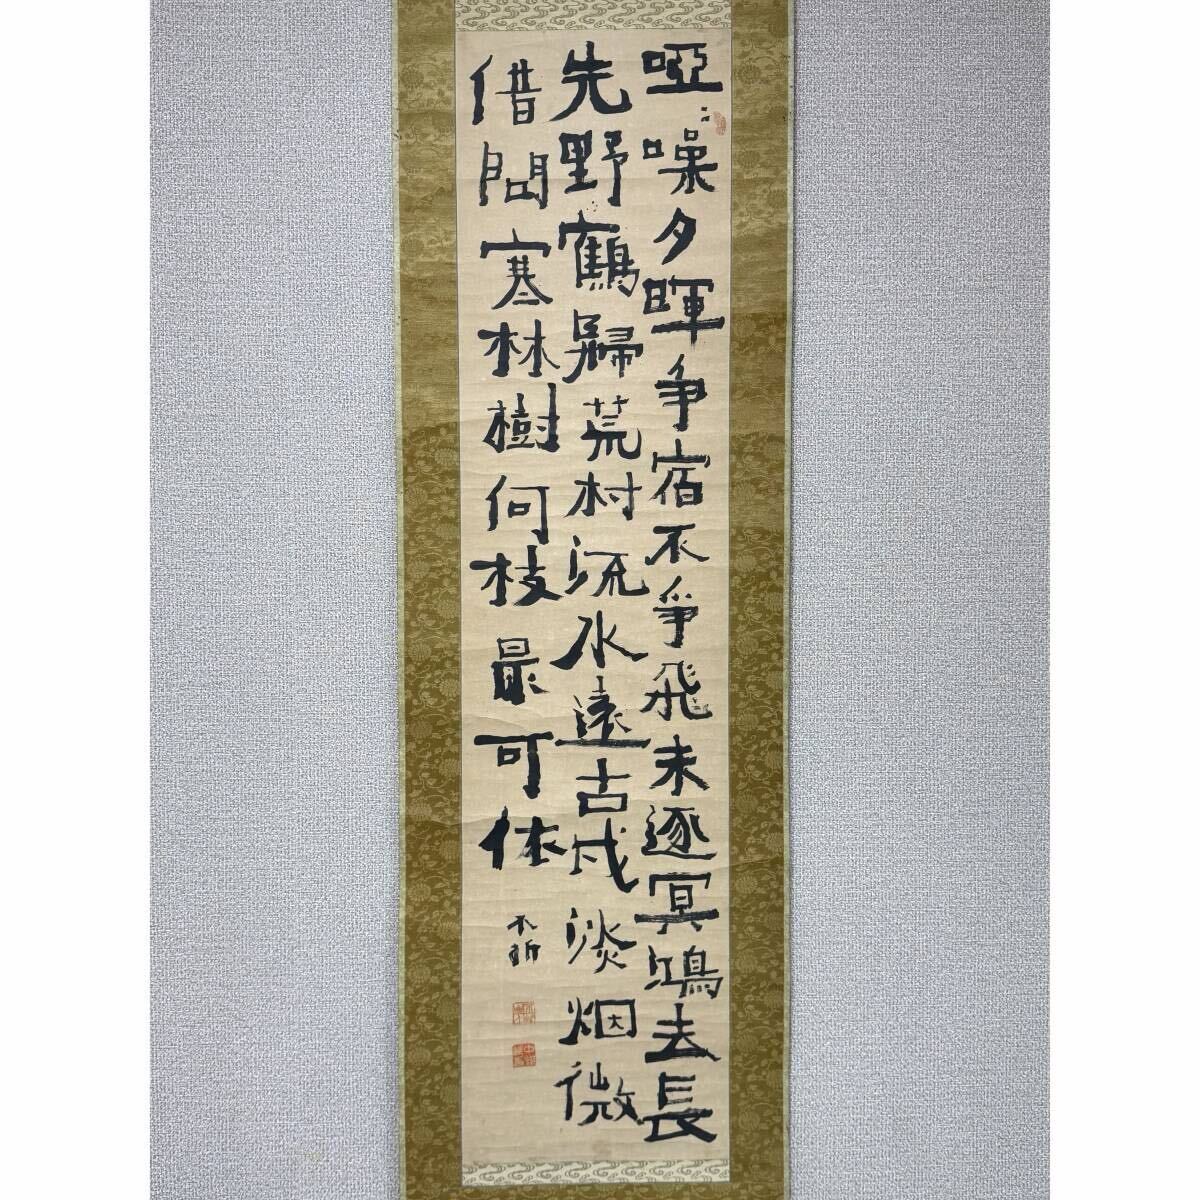 啞〻噪夕暉争宿不爭飛未逐冥鴻去長
先野鶴歸荒村流水遠古戍淡烟微
借問寒林樹何枝最可依
不折